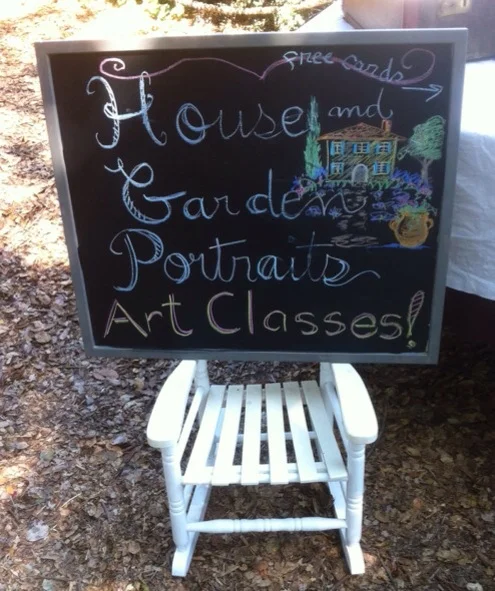 Free Cards
House and
Garden
Portraits
Art Classes!